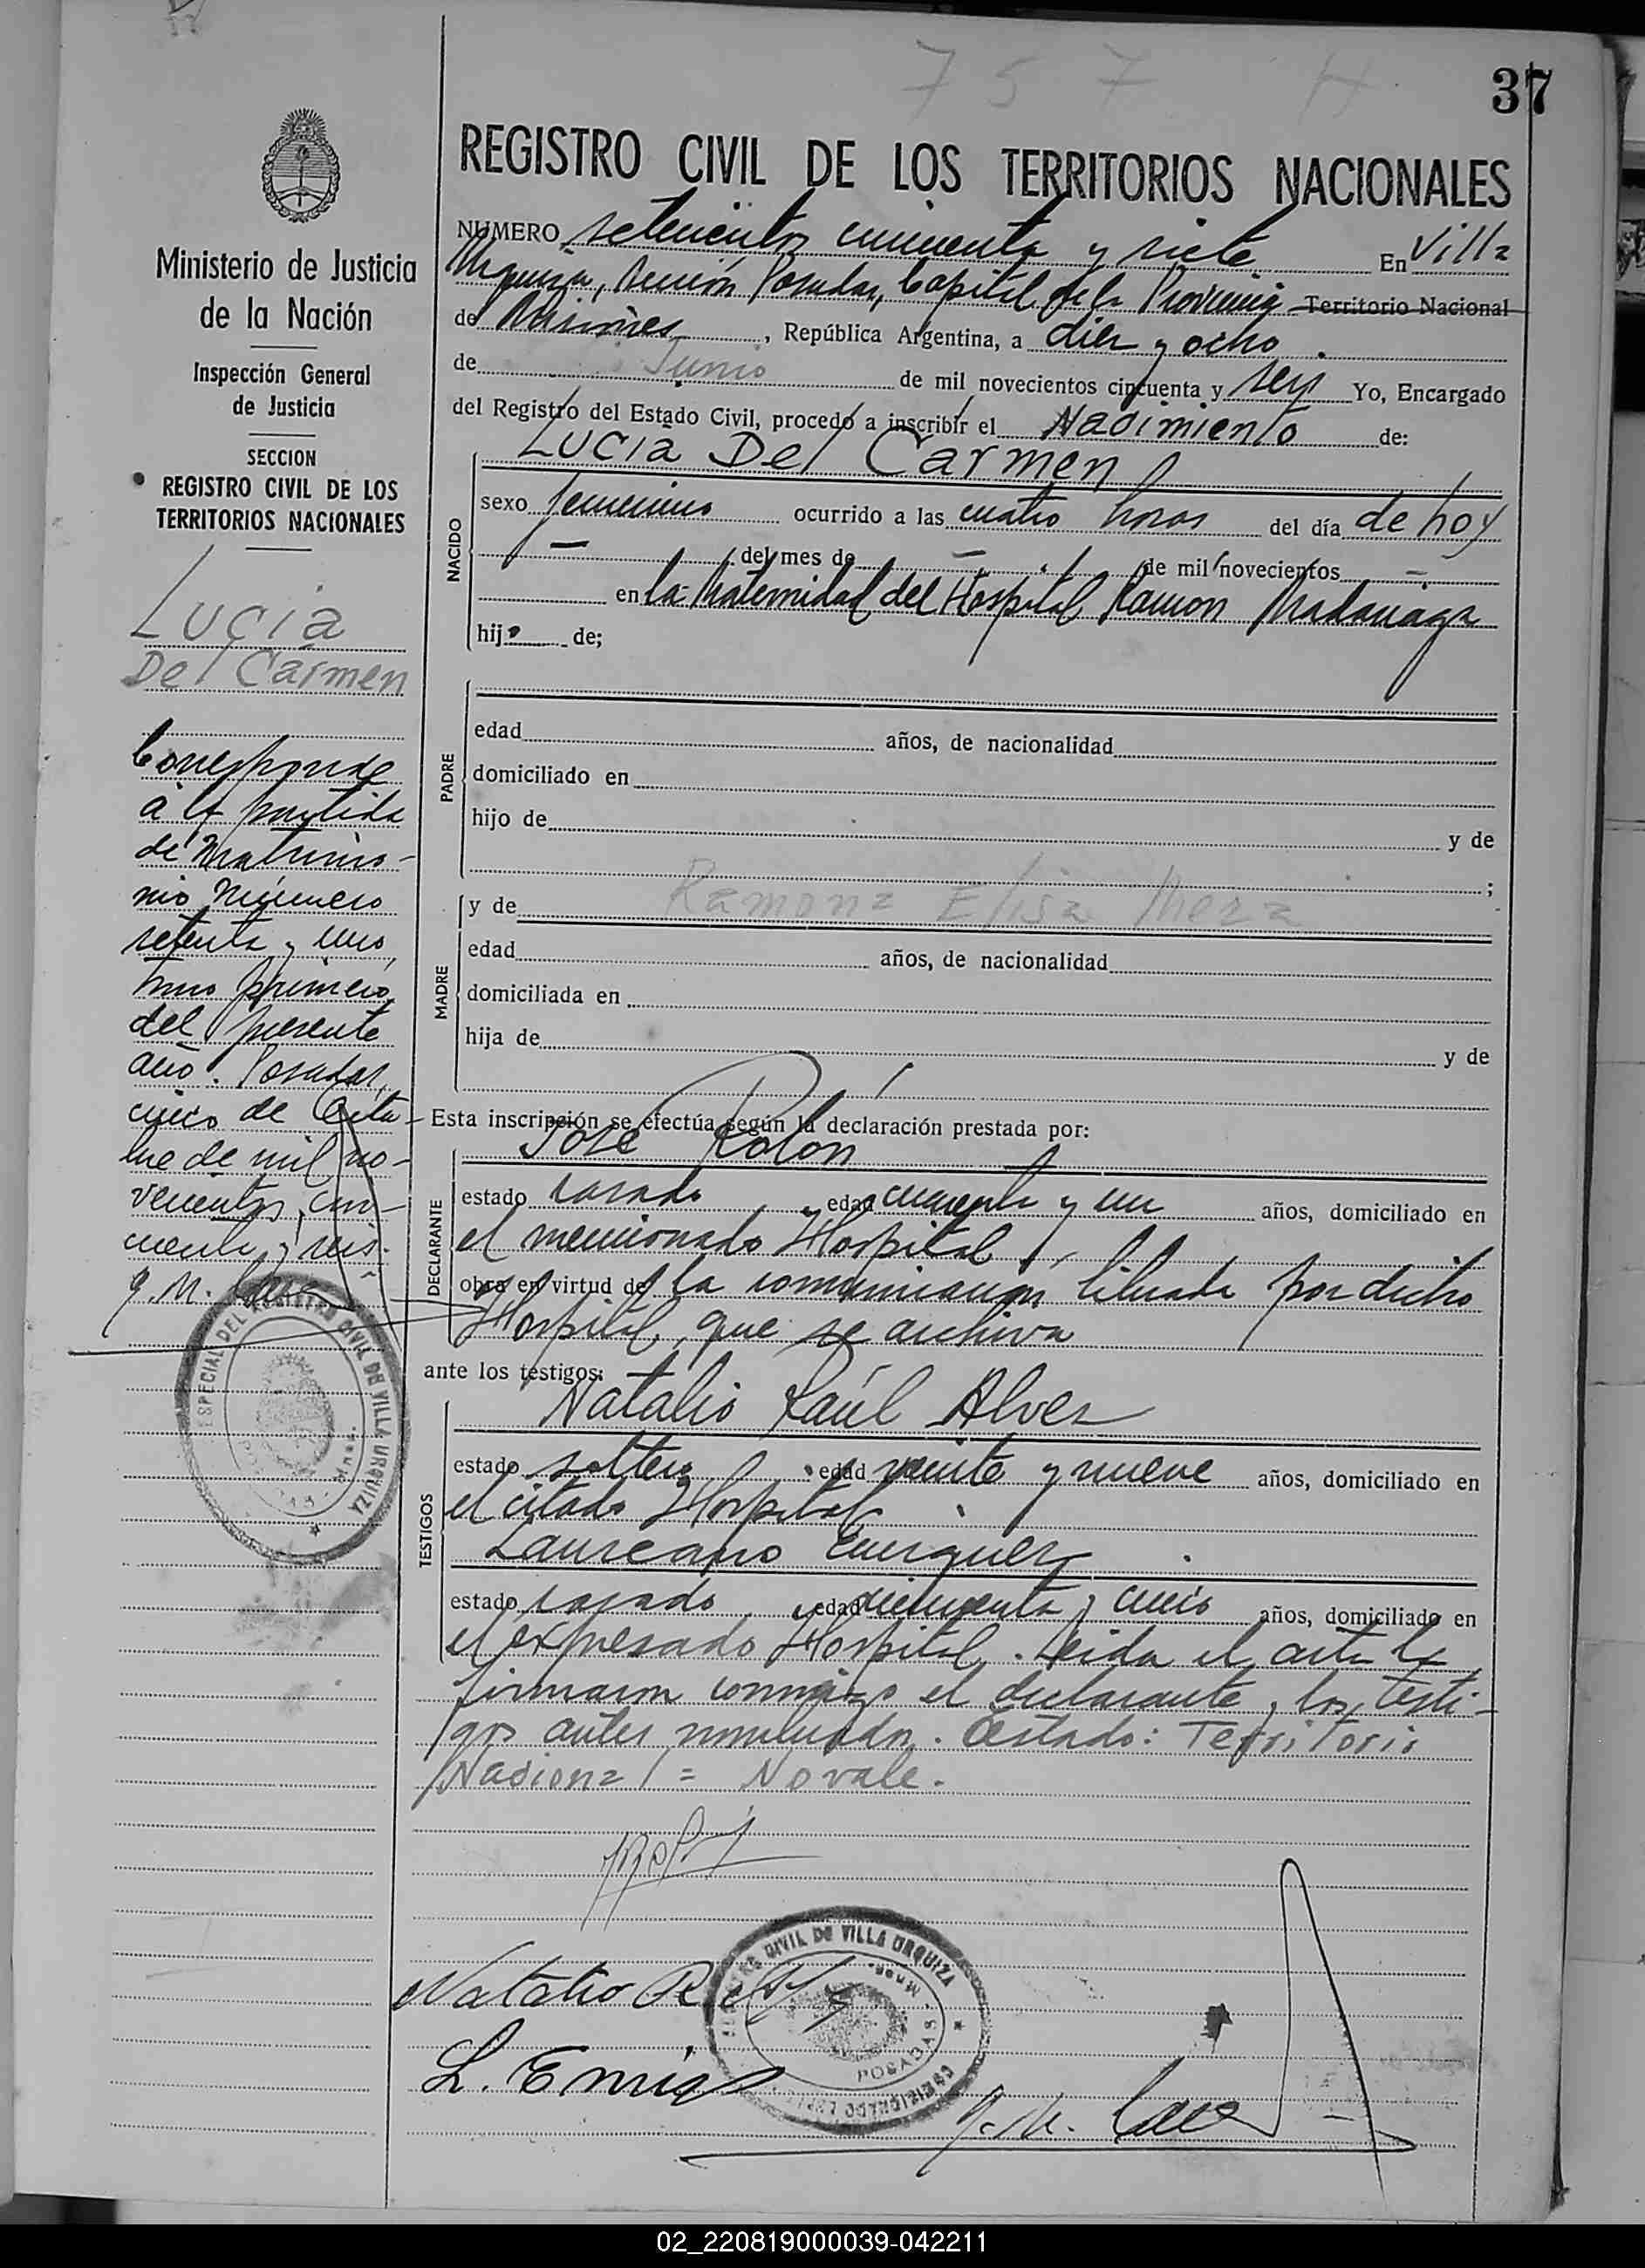 757 H
37
REGISTRO CIVIL DE LOS TERRITORIOS NACIONALES
NUMERO setecientos cincuenta y siete En Villa
Urquiza, Sección Posadas, Capital de la Provincia Territorio Nacional
de Misiones, República Argentina, a diez y ocho
de Junio de mil novecientos cincuenta y seis Yo, Encargado
del Registro del Estado Civil, procedo a inscribir el Nacimiento de:
Lucia Del Carmen
NACIDO
sexo femenino ocurrido a las cuatro horas del día de hoy
— del mes de — de mil novecientos —
en la Maternidad del Hospital Ramon Madariaga
hija de;
PADRE
edad años, de nacionalidad
domiciliado en
hijo de y de
;
MADRE
y de Ramona Elisa Meza
edad años, de nacionalidad
domiciliada en
hija de y de
Esta inscripción se efectúa según la declaración prestada por:
José Rolón
DECLARANTE
estado casado edad cuarenta y un años, domiciliado en
el mencionado Hospital
obra en virtud de la comunicacion librada por dicho
Hospital, que se archiva
ante los testigos:
Natalio Raúl Alvez
TESTIGOS
estado soltero edad veinte y nueve años, domiciliado en
el citado Hospital
Laureano Enriquez
estado casado edad cincuenta y cinco años, domiciliado en
el expresado Hospital. Leida el acta la
firmaron conmigo el declarante y los testi-
gos antes nombrados. Testado: Territorio
Nacional = No vale.
Natalio R.
L. Enriq
REGISTRO CIVIL DE VILLA URQUIZA
POSADAS - Mnes.
Ministerio de Justicia
de la Nación
Inspección General
de Justicia
SECCION
REGISTRO CIVIL DE LOS
TERRITORIOS NACIONALES
Lucia
Del Carmen
Corresponde
a la partida
de Matrimo-
nio Número
setenta y uno
tomo primero
del presente
año. Posadas,
cinco de Octu-
bre de mil no-
vecientos cin-
cuenta y seis.
ESPECIAL DEL REGISTRO CIVIL DE VILLA URQUIZA
POSADAS - Mnes.
02_220819000039-042211